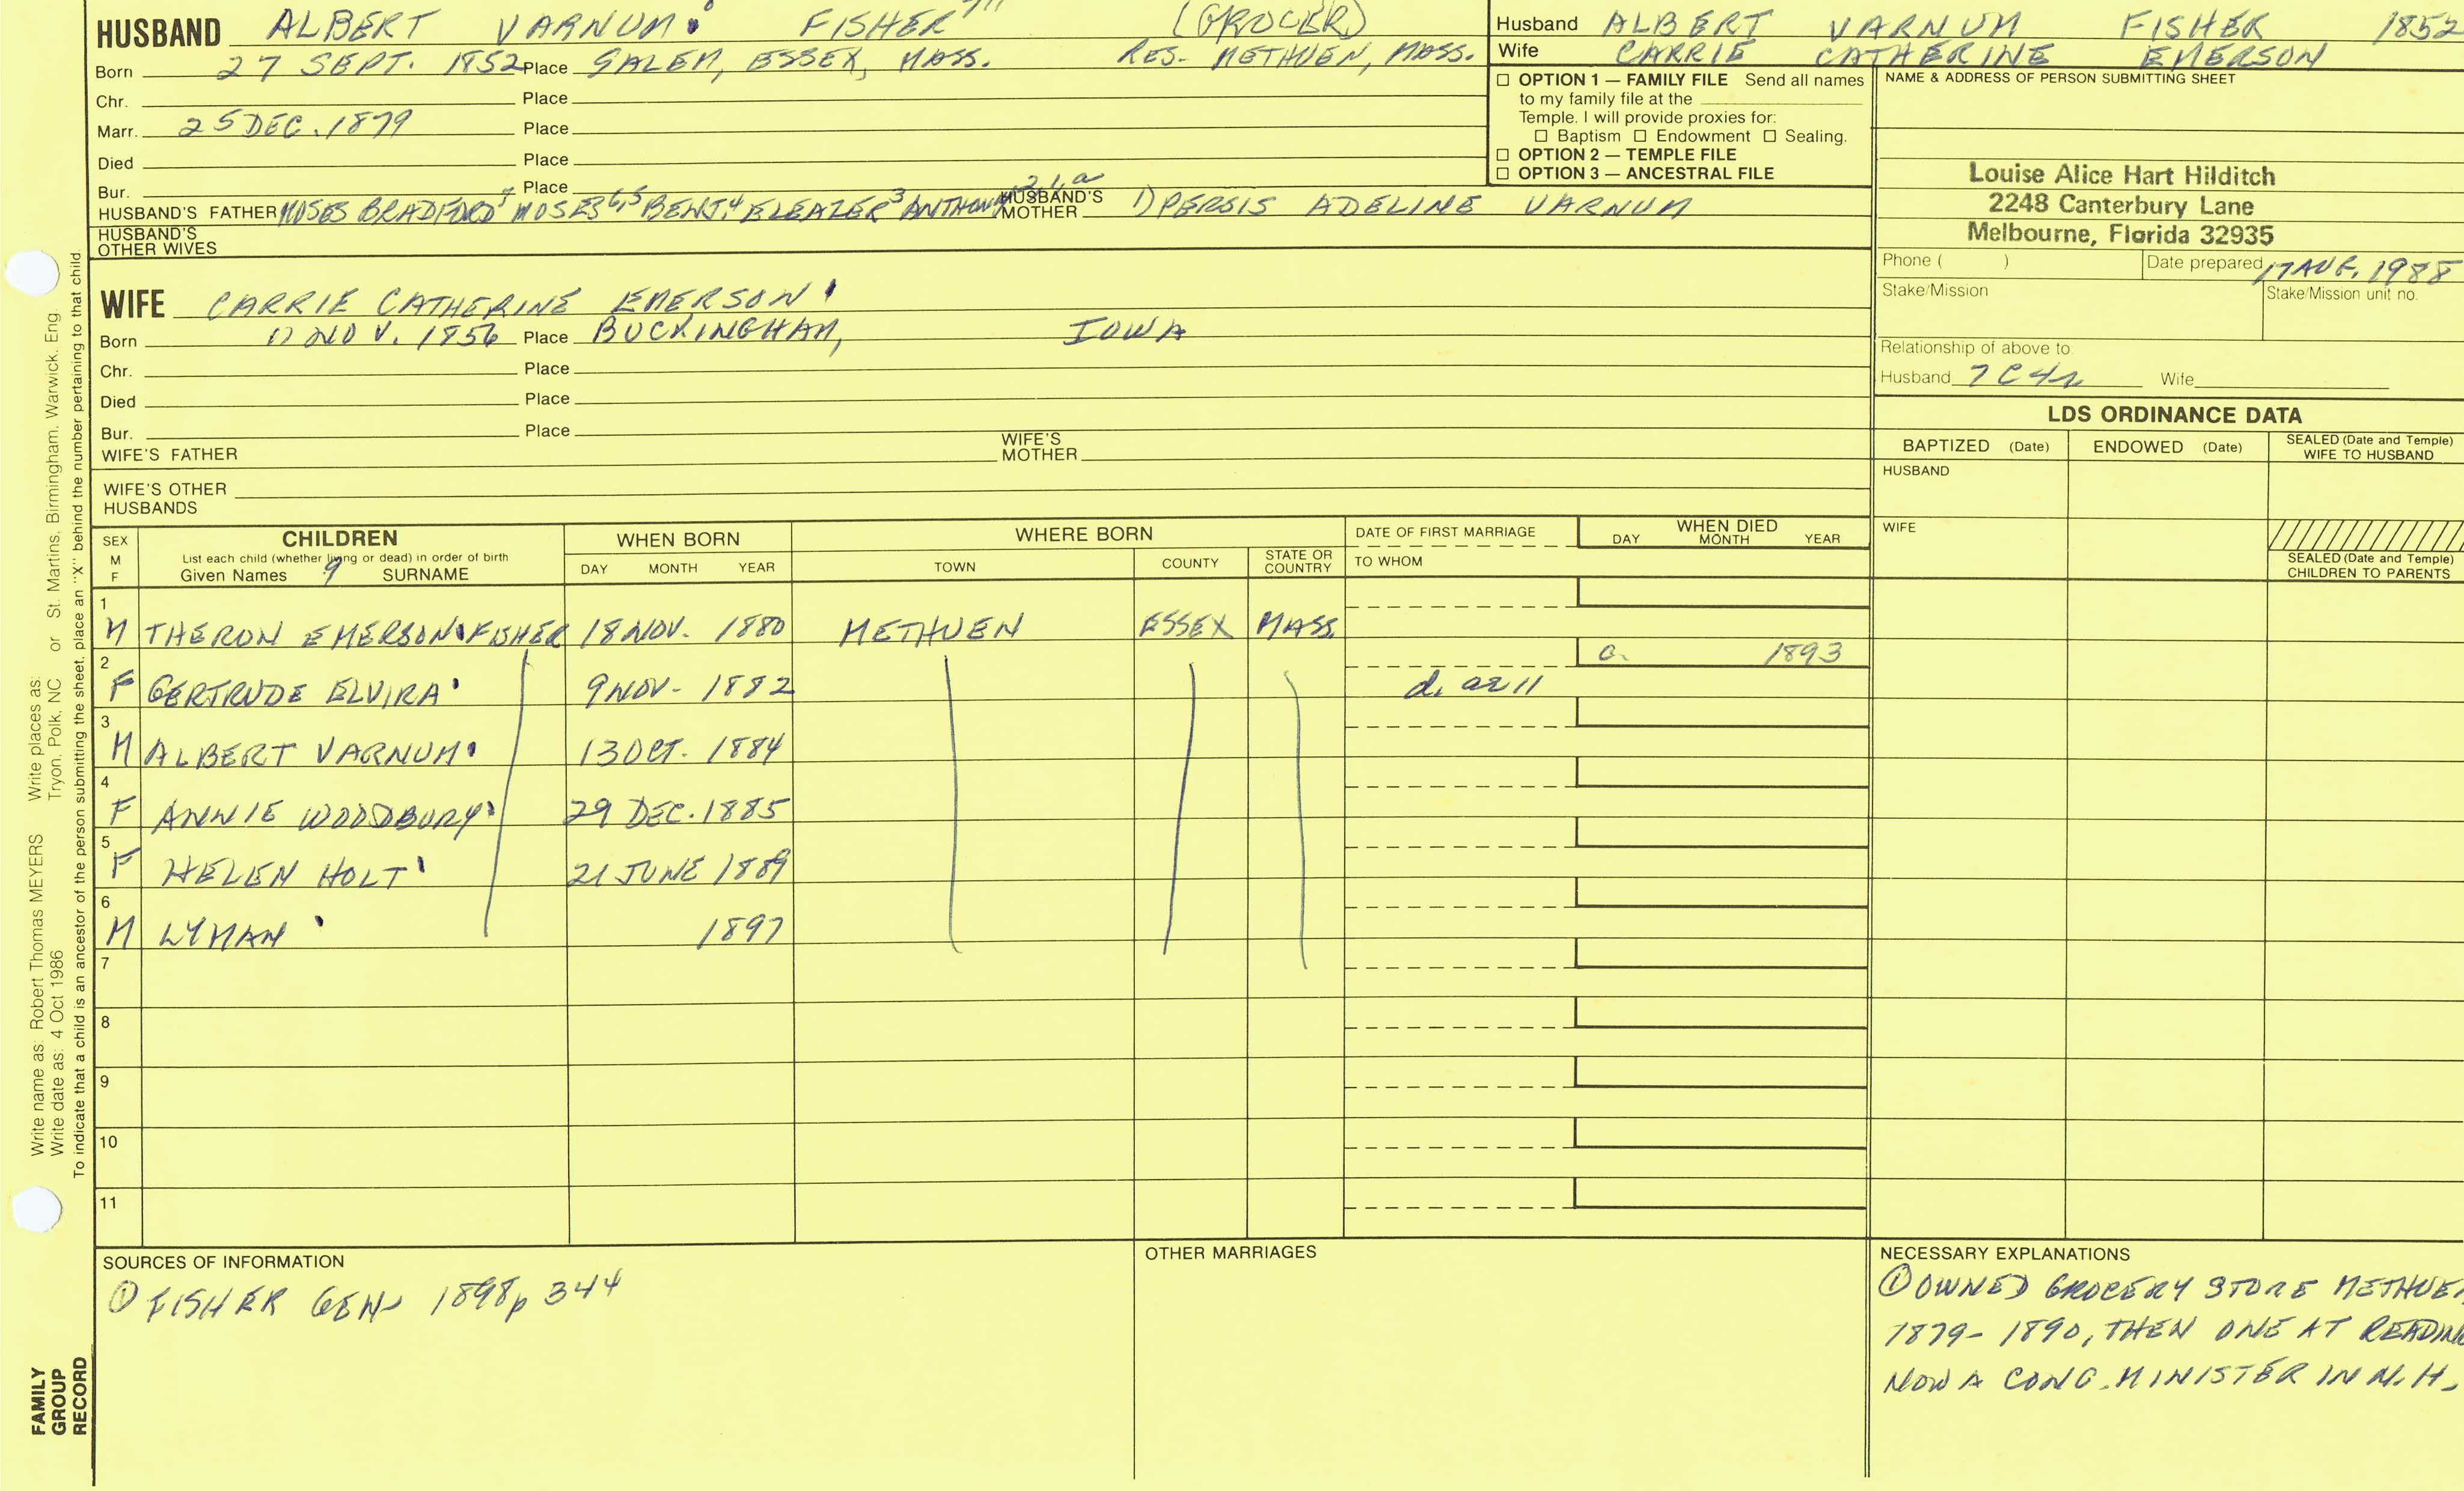 HUSBAND ALBERT VARNUM FISHER (GROCER)
Born 27 SEPT. 1852 Place SALEM, ESSEX, MASS. RES. METHUEN, MASS.
Chr. Place
Marr. 25 DEC. 1879 Place
Died Place
Bur. Place
HUSBAND'S FATHER MOSES BRADFORD7 MOSES6,5 BENJ.4 ELEAZER3 ANTHONY2,1,a HUSBAND'S MOTHER 1) PERSIS ADELINE VARNUM
HUSBAND'S
OTHER WIVES
Husband ALBERT VARNUM FISHER 1852
Wife CARRIE CATHERINE EMERSON
☐ OPTION 1 — FAMILY FILE Send all names
to my family file at the
Temple. I will provide proxies for:
☐ Baptism ☐ Endowment ☐ Sealing.
☐ OPTION 2 — TEMPLE FILE
☐ OPTION 3 — ANCESTRAL FILE
NAME & ADDRESS OF PERSON SUBMITTING SHEET
Louise Alice Hart Hilditch
2248 Canterbury Lane
Melbourne, Florida 32935
Phone ( ) Date prepared 17 AUG. 1988
Stake/Mission Stake/Mission unit no.
Relationship of above to:
Husband 7C4r Wife
WIFE CARRIE CATHERINE EMERSON
Born NOV. 1856 Place BUCKINGHAM, IOWA
Chr. Place
Died Place
Bur. Place
WIFE'S FATHER WIFE'S MOTHER
WIFE'S OTHER
HUSBANDS
LDS ORDINANCE DATA
BAPTIZED (Date) ENDOWED (Date) SEALED (Date and Temple) WIFE TO HUSBAND
HUSBAND
WIFE
SEALED (Date and Temple)
CHILDREN TO PARENTS
SEX M F CHILDREN WHEN BORN WHERE BORN DATE OF FIRST MARRIAGE WHEN DIED
List each child (whether living or dead) in order of birth
Given Names 9 SURNAME DAY MONTH YEAR TOWN COUNTY STATE OR COUNTRY TO WHOM DAY MONTH YEAR
1 M THERON EMERSON FISHER 18 NOV. 1880 METHUEN ESSEX MASS.
2 F GERTRUDE ELVIRA 9 NOV. 1882 d. ae 11 a. 1893
3 M ALBERT VARNUM 13 OCT. 1884
4 F ANNIE WOODBURY 29 DEC. 1885
5 F HELEN HOLT 21 JUNE 1889
6 M LYMAN 1897
7
8
9
10
11
SOURCES OF INFORMATION
① FISHER GEN. 1898 p 344
OTHER MARRIAGES
NECESSARY EXPLANATIONS
① OWNED GROCERY STORE METHUEN
1879-1890, THEN ONE AT READING
NOW A CONG. MINISTER IN N.H.
Write name as: Robert Thomas MEYERS Write places as:
Write date as: 4 Oct 1986 Tryon, Polk, NC or St. Martins, Birmingham, Warwick, Eng.
To indicate that a child is an ancestor of the person submitting the sheet, place an "X" behind the number pertaining to that child.
FAMILY
GROUP
RECORD